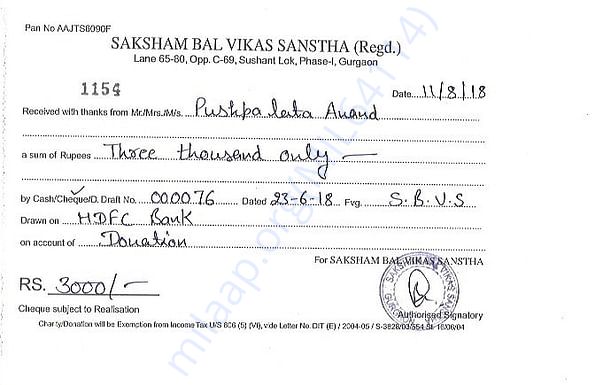 Pan No AAJTS6090F
SAKSHAM BAL VIKAS SANSTHA (Regd.)
Lane 65-80, Opp. C-69, Sushant Lok, Phase-I, Gurgaon
1154
Date 11/8/18
Received with thanks from Mr/Mrs./M/s. Pushpa Lata Anand
a sum of Rupees Three thousand only
by Cash/Cheque/D. Draft No. 000076 Dated 23-6-18 Fvg. S.B.V.S
Drawn on HDFC Bank
on account of Donation
For SAKSHAM BAL VIKAS SANSTHA
RS. 3000/-
Authorised Signatory
Cheque subject to Realisation
Charity/Donation will be Exemption from Income Tax U/S 80G (5) (VI), vide Letter No. DIT (E) / 2004-05 /
milaap.org